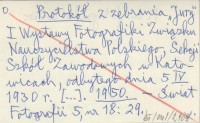 Protokół z zebrania "Jury"
I Wystawy Fotografiki Związku
Nauczycielstwa Polskiego, Sekcji
Szkół Zawodowych w Kato-
wicach, odbytego dnia 5 IV
1930 r. [...]. 1950. — Świat
Fotografii 5, nr 18: 29.